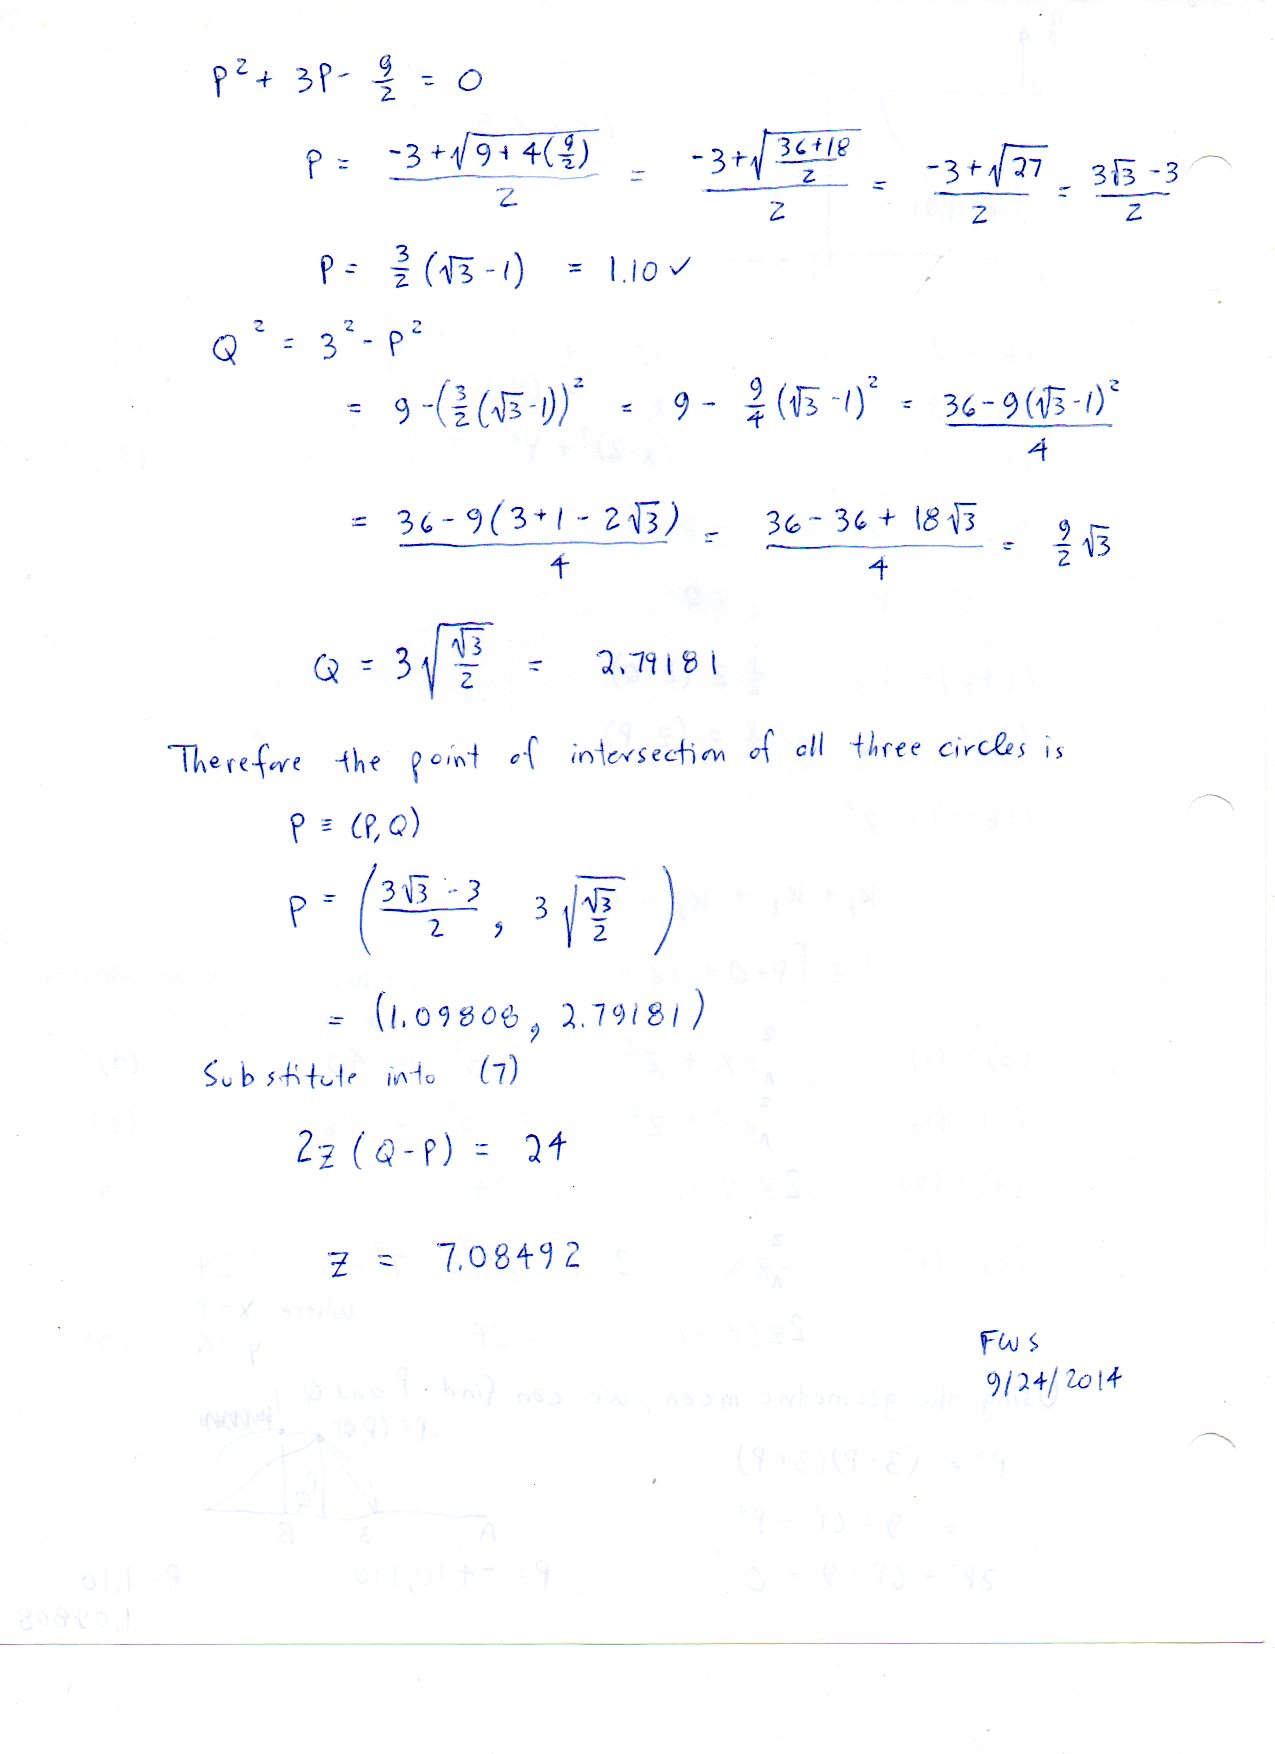 P² + 3P - 9/2 = 0
P = (-3 + √(9 + 4(9/2)))/2 = (-3 + √((36+18)/2))/2 = (-3 + √27)/2 = (3√3 - 3)/2
P = 3/2 (√3 - 1) = 1.10 ✓
Q² = 3² - P²
= 9 - (3/2 (√3 - 1))² = 9 - 9/4 (√3 - 1)² = (36 - 9(√3 - 1)²)/4
= (36 - 9(3 + 1 - 2√3))/4 = (36 - 36 + 18√3)/4 = 9/2 √3
Q = 3√(√3/2) = 2.79181
Therefore the point of intersection of all three circles is
P ≡ (P, Q)
P = ((3√3 - 3)/2, 3√(√3/2))
= (1.09808, 2.79181)
Substitute into (7)
2z (Q - P) = 24
z = 7.08492
FWS
9/24/2014